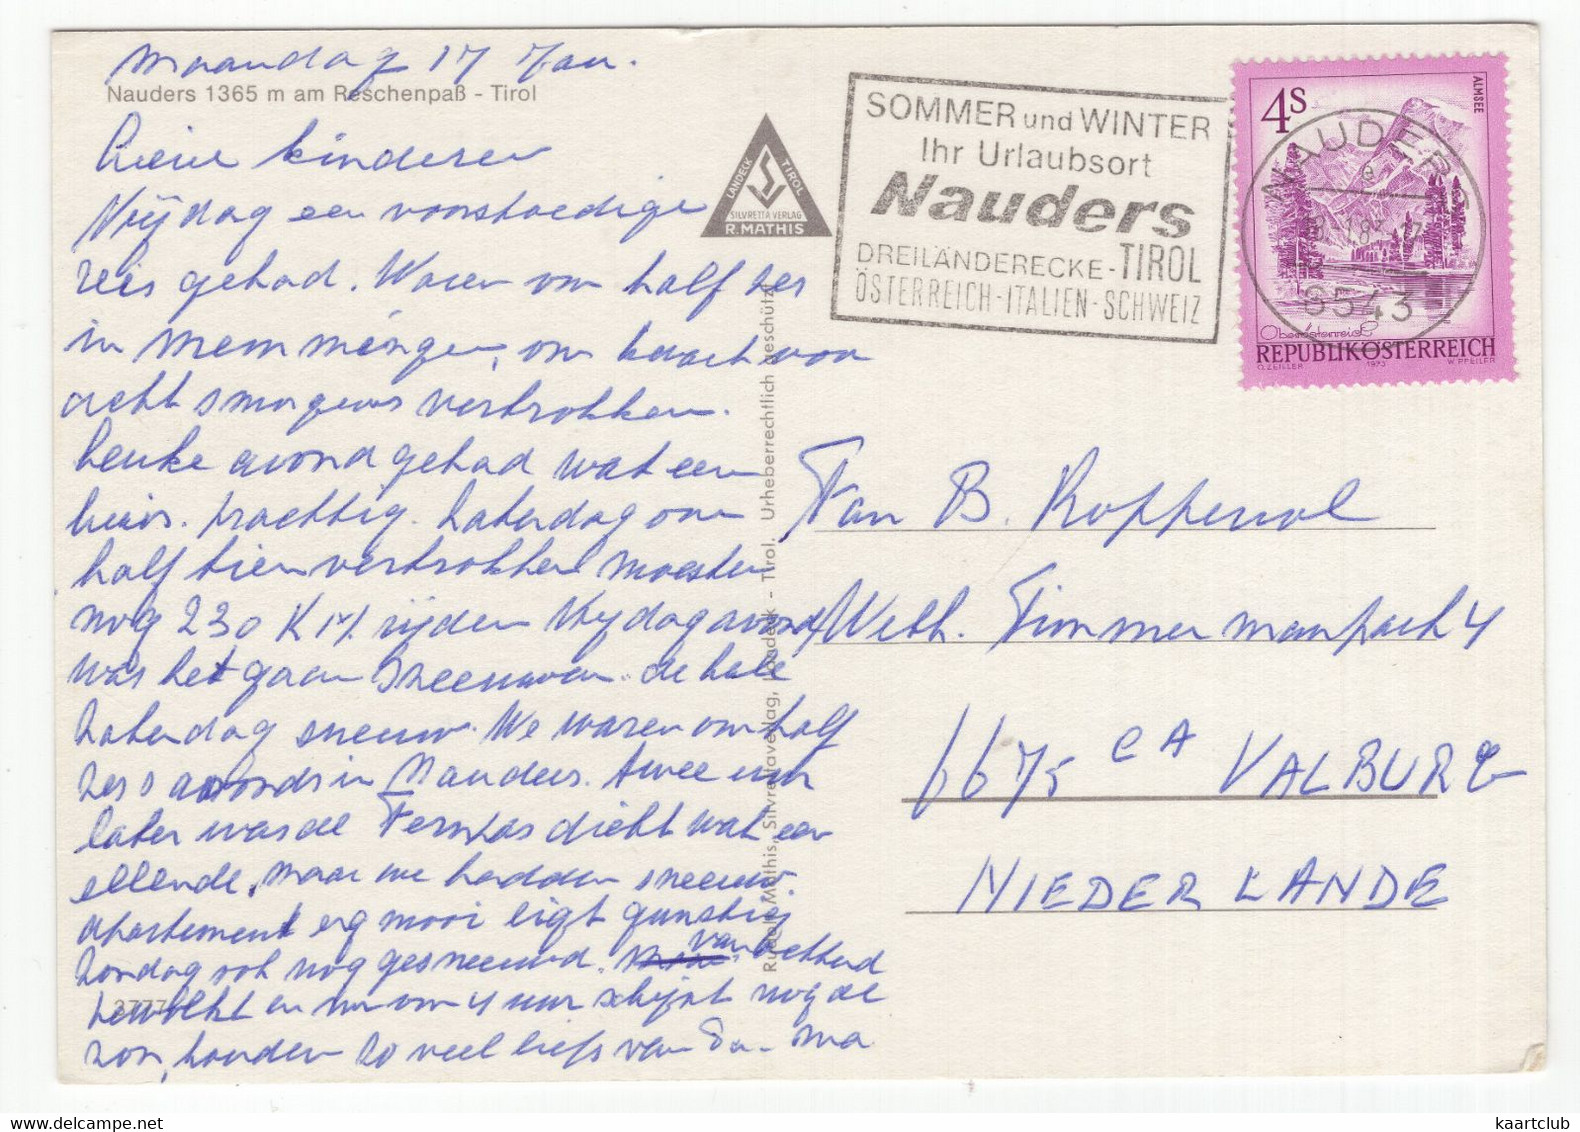 maandag 17 Jan.
Nauders 1365 m am Reschenpaß - Tirol
Lieve kinderen
Vrijdag een voorstoedige
reis gehad. Waren om half zes
in Memmingen, om kwart voor
acht smorgens vertrokken.
Leuke avond gehad wat een
huis. prachtig. Zaterdag om
half tien vertrokken moesten
nog 230 KM. rijden Vrijdagavond
was het gaan Sneeuwen. de hele
Zaterdag sneeuw. We waren om half
zes s avonds in Nauders. twee uur
later was de Fernpas dicht wat een
ellende, maar we hadden sneeuw.
apartement erg mooi ligt gunstig
Zondag ook nog gesneeuwd. van
bewolkt en nu om 4 uur schijnt nog de
zon, handen zo veel liefs van Pa. Ma
3777
LANDECK TIROL
SILVRETTA VERLAG
R. MATHIS
Rudolf Mathis, Silvrettaverlag, Landeck - Tirol. Urheberrechtlich geschützt!
SOMMER und WINTER
Ihr Urlaubsort
Nauders
DREILÄNDERECKE-TIROL
ÖSTERREICH-ITALIEN-SCHWEIZ
4S
ALMSEE
NAUDERS
6543
Oberösterreich
REPUBLIK ÖSTERREICH
O. ZEILLER 1973 W. PFEILER
Fan B. Roppenol
Weth. Timmermanpark 4
6675 CA VALBURG
NIEDERLANDE
www.delcampe.net
kaartclub